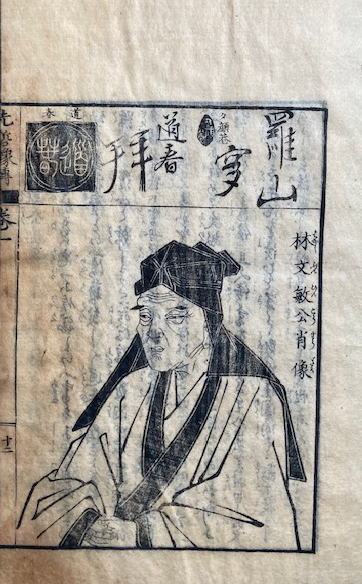 羅山
夕顔巷
道春
拜
道春
道春
林文敏公肖像
先哲像傳
卷一
十二